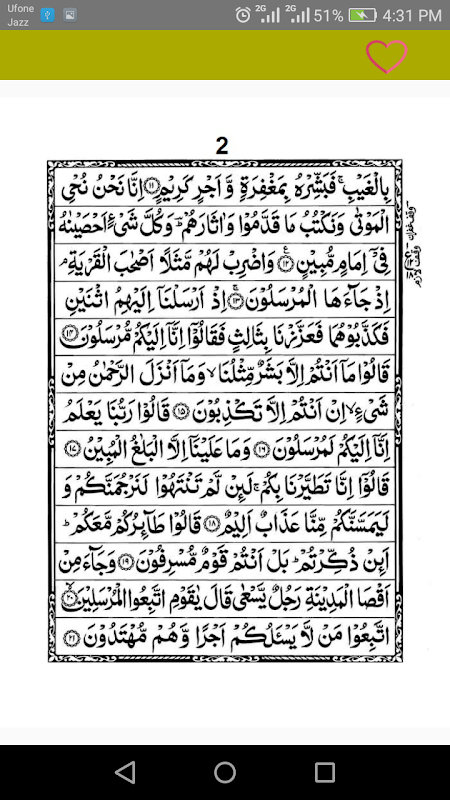 Ufone
Jazz
2G
2G
51%
4:31 PM
2
بِالْغَيْبِ ۚ فَبَشِّرْهُ بِمَغْفِرَةٍ وَّاَجْرٍ كَرِيْمٍ ﴿۱۱﴾ اِنَّا نَحْنُ نُحْيِ
الْمَوْتٰى وَنَكْتُبُ مَا قَدَّمُوْا وَاٰثَارَهُمْ ؕ وَكُلَّ شَيْءٍ اَحْصَيْنٰهُ
فِيْۤ اِمَامٍ مُّبِيْنٍ ﴿۱۲﴾ وَاضْرِبْ لَهُمْ مَّثَلًا اَصْحٰبَ الْقَرْيَةِ ۘ
اِذْ جَآءَهَا الْمُرْسَلُوْنَ ﴿۱۳﴾ اِذْ اَرْسَلْنَاۤ اِلَيْهِمُ اثْنَيْنِ
فَكَذَّبُوْهُمَا فَعَزَّزْنَا بِثَالِثٍ فَقَالُوْۤا اِنَّاۤ اِلَيْكُمْ مُّرْسَلُوْنَ ﴿۱۴﴾
قَالُوْا مَاۤ اَنْتُمْ اِلَّا بَشَرٌ مِّثْلُنَا ۙ وَمَاۤ اَنْزَلَ الرَّحْمٰنُ مِنْ
شَيْءٍ ۙ اِنْ اَنْتُمْ اِلَّا تَكْذِبُوْنَ ﴿۱۵﴾ قَالُوْا رَبُّنَا يَعْلَمُ
اِنَّاۤ اِلَيْكُمْ لَمُرْسَلُوْنَ ﴿۱۶﴾ وَمَا عَلَيْنَاۤ اِلَّا الْبَلٰغُ الْمُبِيْنُ ﴿۱۷﴾
قَالُوْۤا اِنَّا تَطَيَّرْنَا بِكُمْ ۚ لَئِنْ لَّمْ تَنْتَهُوْا لَنَرْجُمَنَّكُمْ وَ
لَيَمَسَّنَّكُمْ مِّنَّا عَذَابٌ اَلِيْمٌ ﴿۱۸﴾ قَالُوْا طَآئِرُكُمْ مَّعَكُمْ ؕ
اَئِنْ ذُكِّرْتُمْ ؕ بَلْ اَنْتُمْ قَوْمٌ مُّسْرِفُوْنَ ﴿۱۹﴾ وَجَآءَ مِنْ
اَقْصَا الْمَدِيْنَةِ رَجُلٌ يَّسْعٰى قَالَ يٰقَوْمِ اتَّبِعُوا الْمُرْسَلِيْنَ ﴿۲۰﴾
اتَّبِعُوْا مَنْ لَّا يَسْـَٔلُكُمْ اَجْرًا وَّهُمْ مُّهْتَدُوْنَ ﴿۲۱﴾
وقف لازم